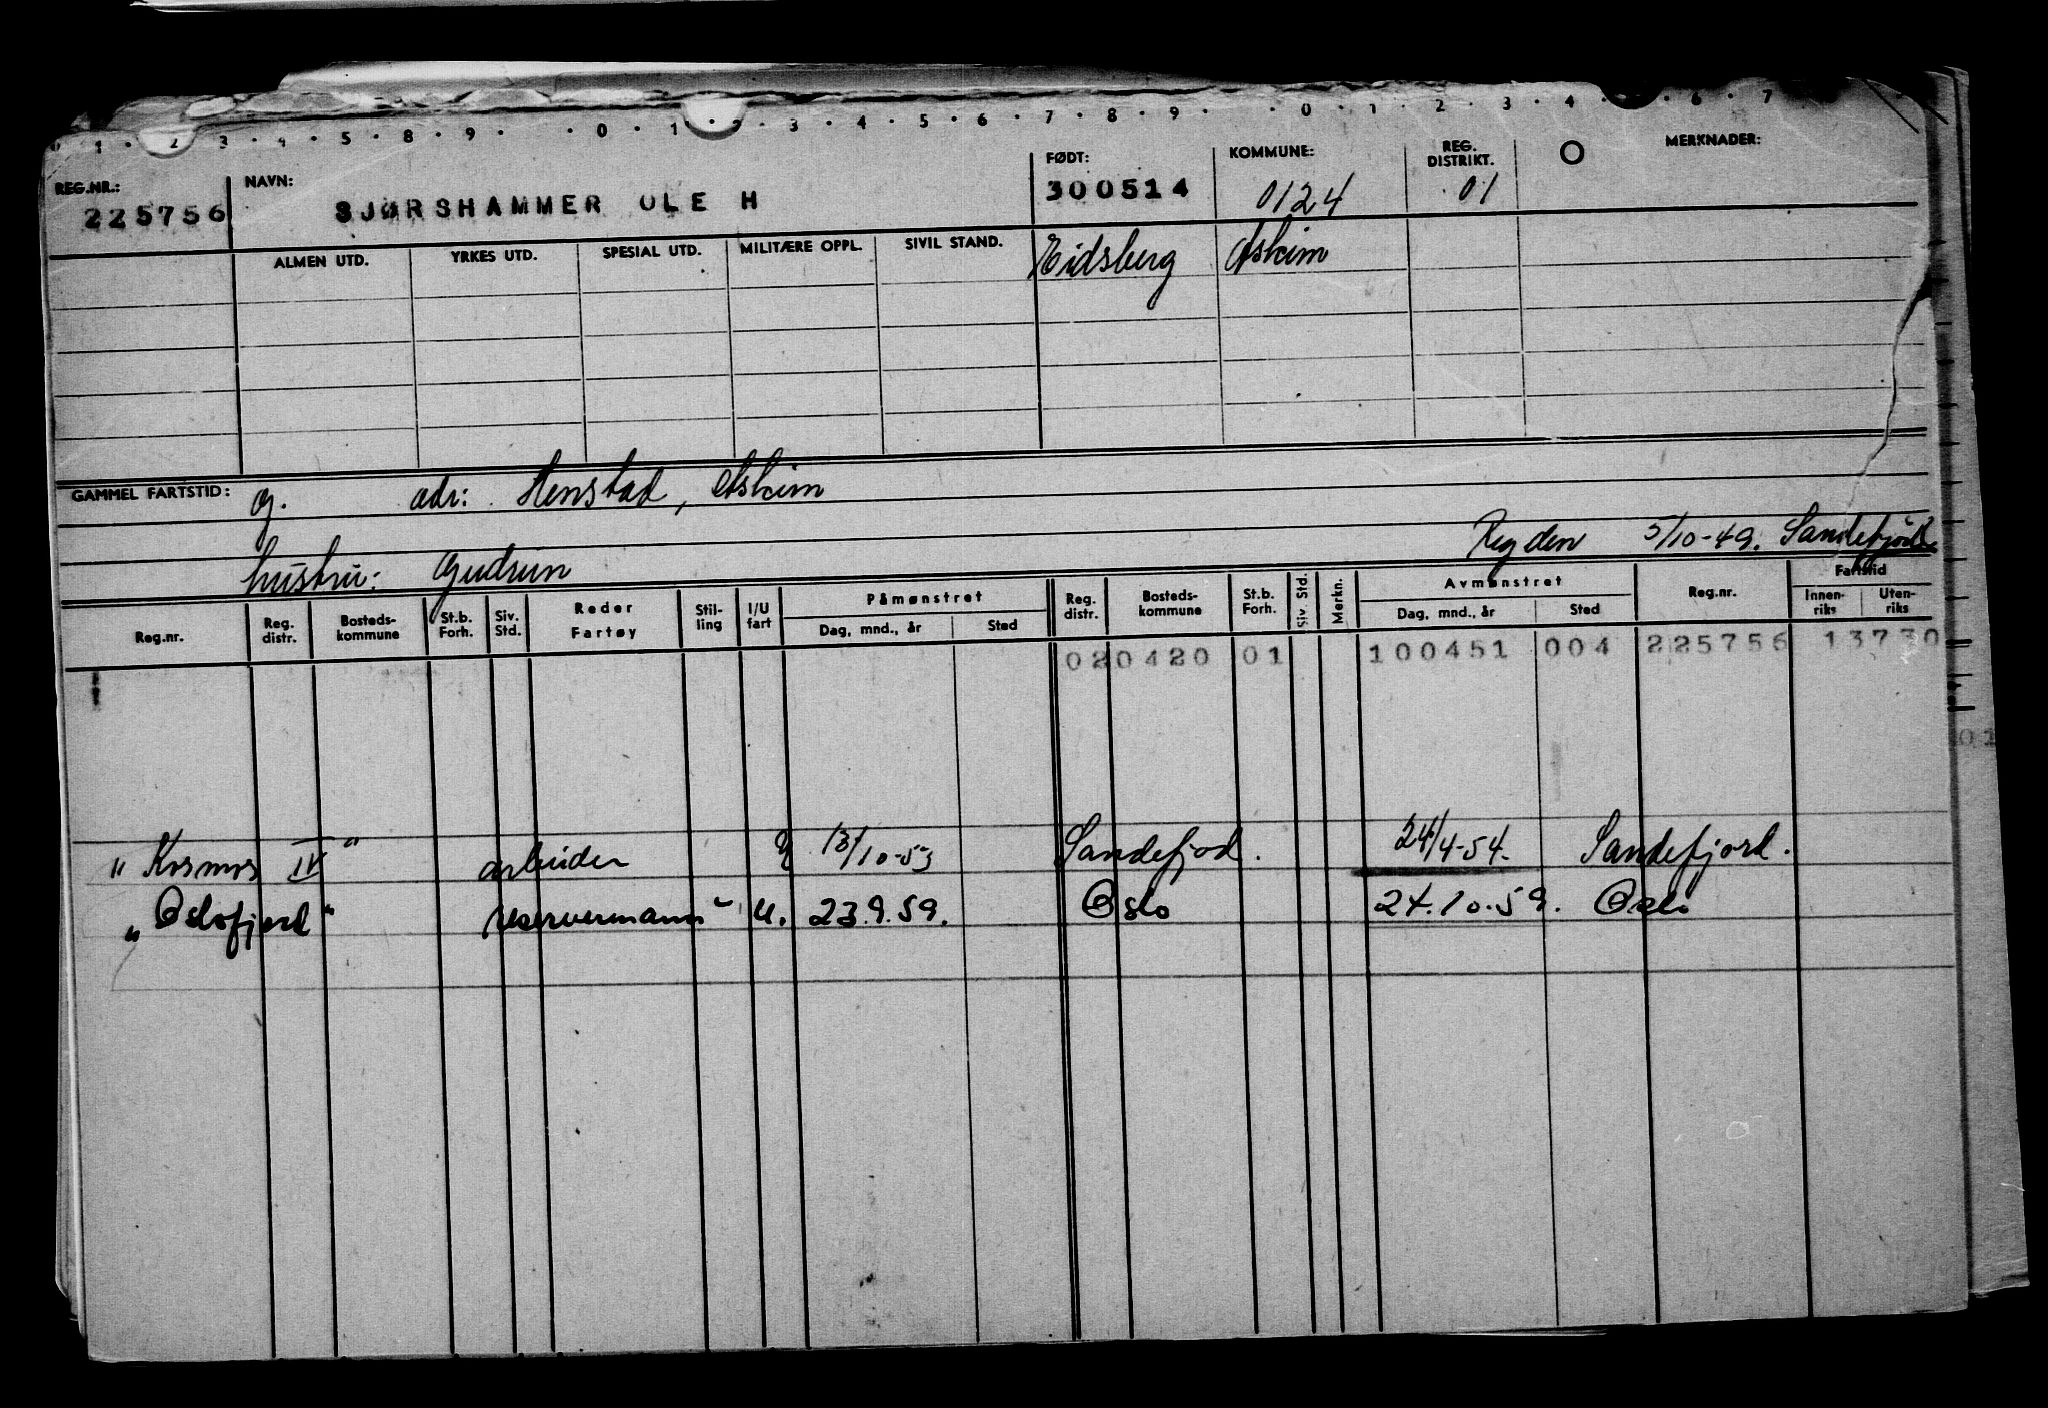 1 · 2 · 3 · 4 · 5 · 8 · 9 · · 0 · 1 · 2 · 3 · 4 · 5 · 6 · 7 · 8 · 9 · · 0 · 1 · 2 · 3 · 4 · 6 · 7
REG.NR.: NAVN: FØDT: KOMMUNE: REG. DISTRIKT. MERKNADER:
225756 SJØRSHAMMER OLE H 300514 0124 01
ALMEN UTD. YRKES UTD. SPESIAL UTD. MILITÆRE OPPL. SIVIL STAND. Eidsberg Askim
GAMMEL FARTSTID: g. adr: Henstad, Askim
Reg den 5/10-49. Sandefjord
hustru: Gudrun
Reg.nr. Reg. distr. Bosteds-kommune St.b. Forh. Siv. Std. Reder Fartøy Stil-ling I/U fart Påmønstret Dag, mnd., år Sted Reg. distr. Bosteds-kommune St.b. Forh. Siv. Std. Merkn. Avmønstret Dag, mnd., år Sted Reg.nr. Fartstid Innen-riks Uten-riks
020420 01 100451 004 225756 13730
01
"Kosmos IV" arbeider 13/10-53 Sandefjod. 24/4-54. Sandefjord.
"Oslofjord" reservemann u. 23.9.59. Oslo 24.10.59. Oslo